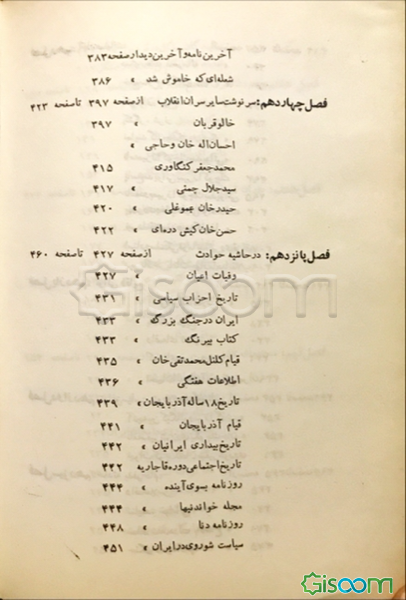 آخرین نامه و آخرین دیدار صفحه ۳۸۳
شعله‌ای که خاموش شد » ۳۸۶
فصل چهاردهم: سرنوشت سایر سران انقلاب از صفحه ۳۹۷ تا صفحه ۴۲۳
خالو قربان » ۳۹۷
احسان‌اله خان و حاجی »
محمد جعفر کنگاوری ۴۱۵
سید جلال چمنی » ۴۱۷
حیدرخان عموغلی » ۴۲۰
حسن خان کیش دره‌ای » ۴۲۲
فصل پانزدهم: در حاشیه حوادث از صفحه ۴۲۷ تا صفحه ۴۶۰
وفیات اعیان » ۴۲۷
تاریخ احزاب سیاسی » ۴۳۱
ایران در جنگ بزرگ » ۴۳۳
کتاب بیرنگ » ۴۳۳
قیام کلنل محمد تقی خان » ۴۳۵
اطلاعات هفتگی » ۴۳۶
تاریخ ۱۸ ساله آذربایجان » ۴۳۹
قیام آذربایجان » ۴۴۱
تاریخ بیداری ایرانیان » ۴۴۲
تاریخ اجتماعی دوره قاجاریه ۴۴۲
روزنامه بسوی آینده » ۴۴۴
مجله خواندنیها » ۴۴۴
روزنامه دنا » ۴۴۸
سیاست شوروی در ایران » ۴۵۱
Gisoom
Gisoom.com